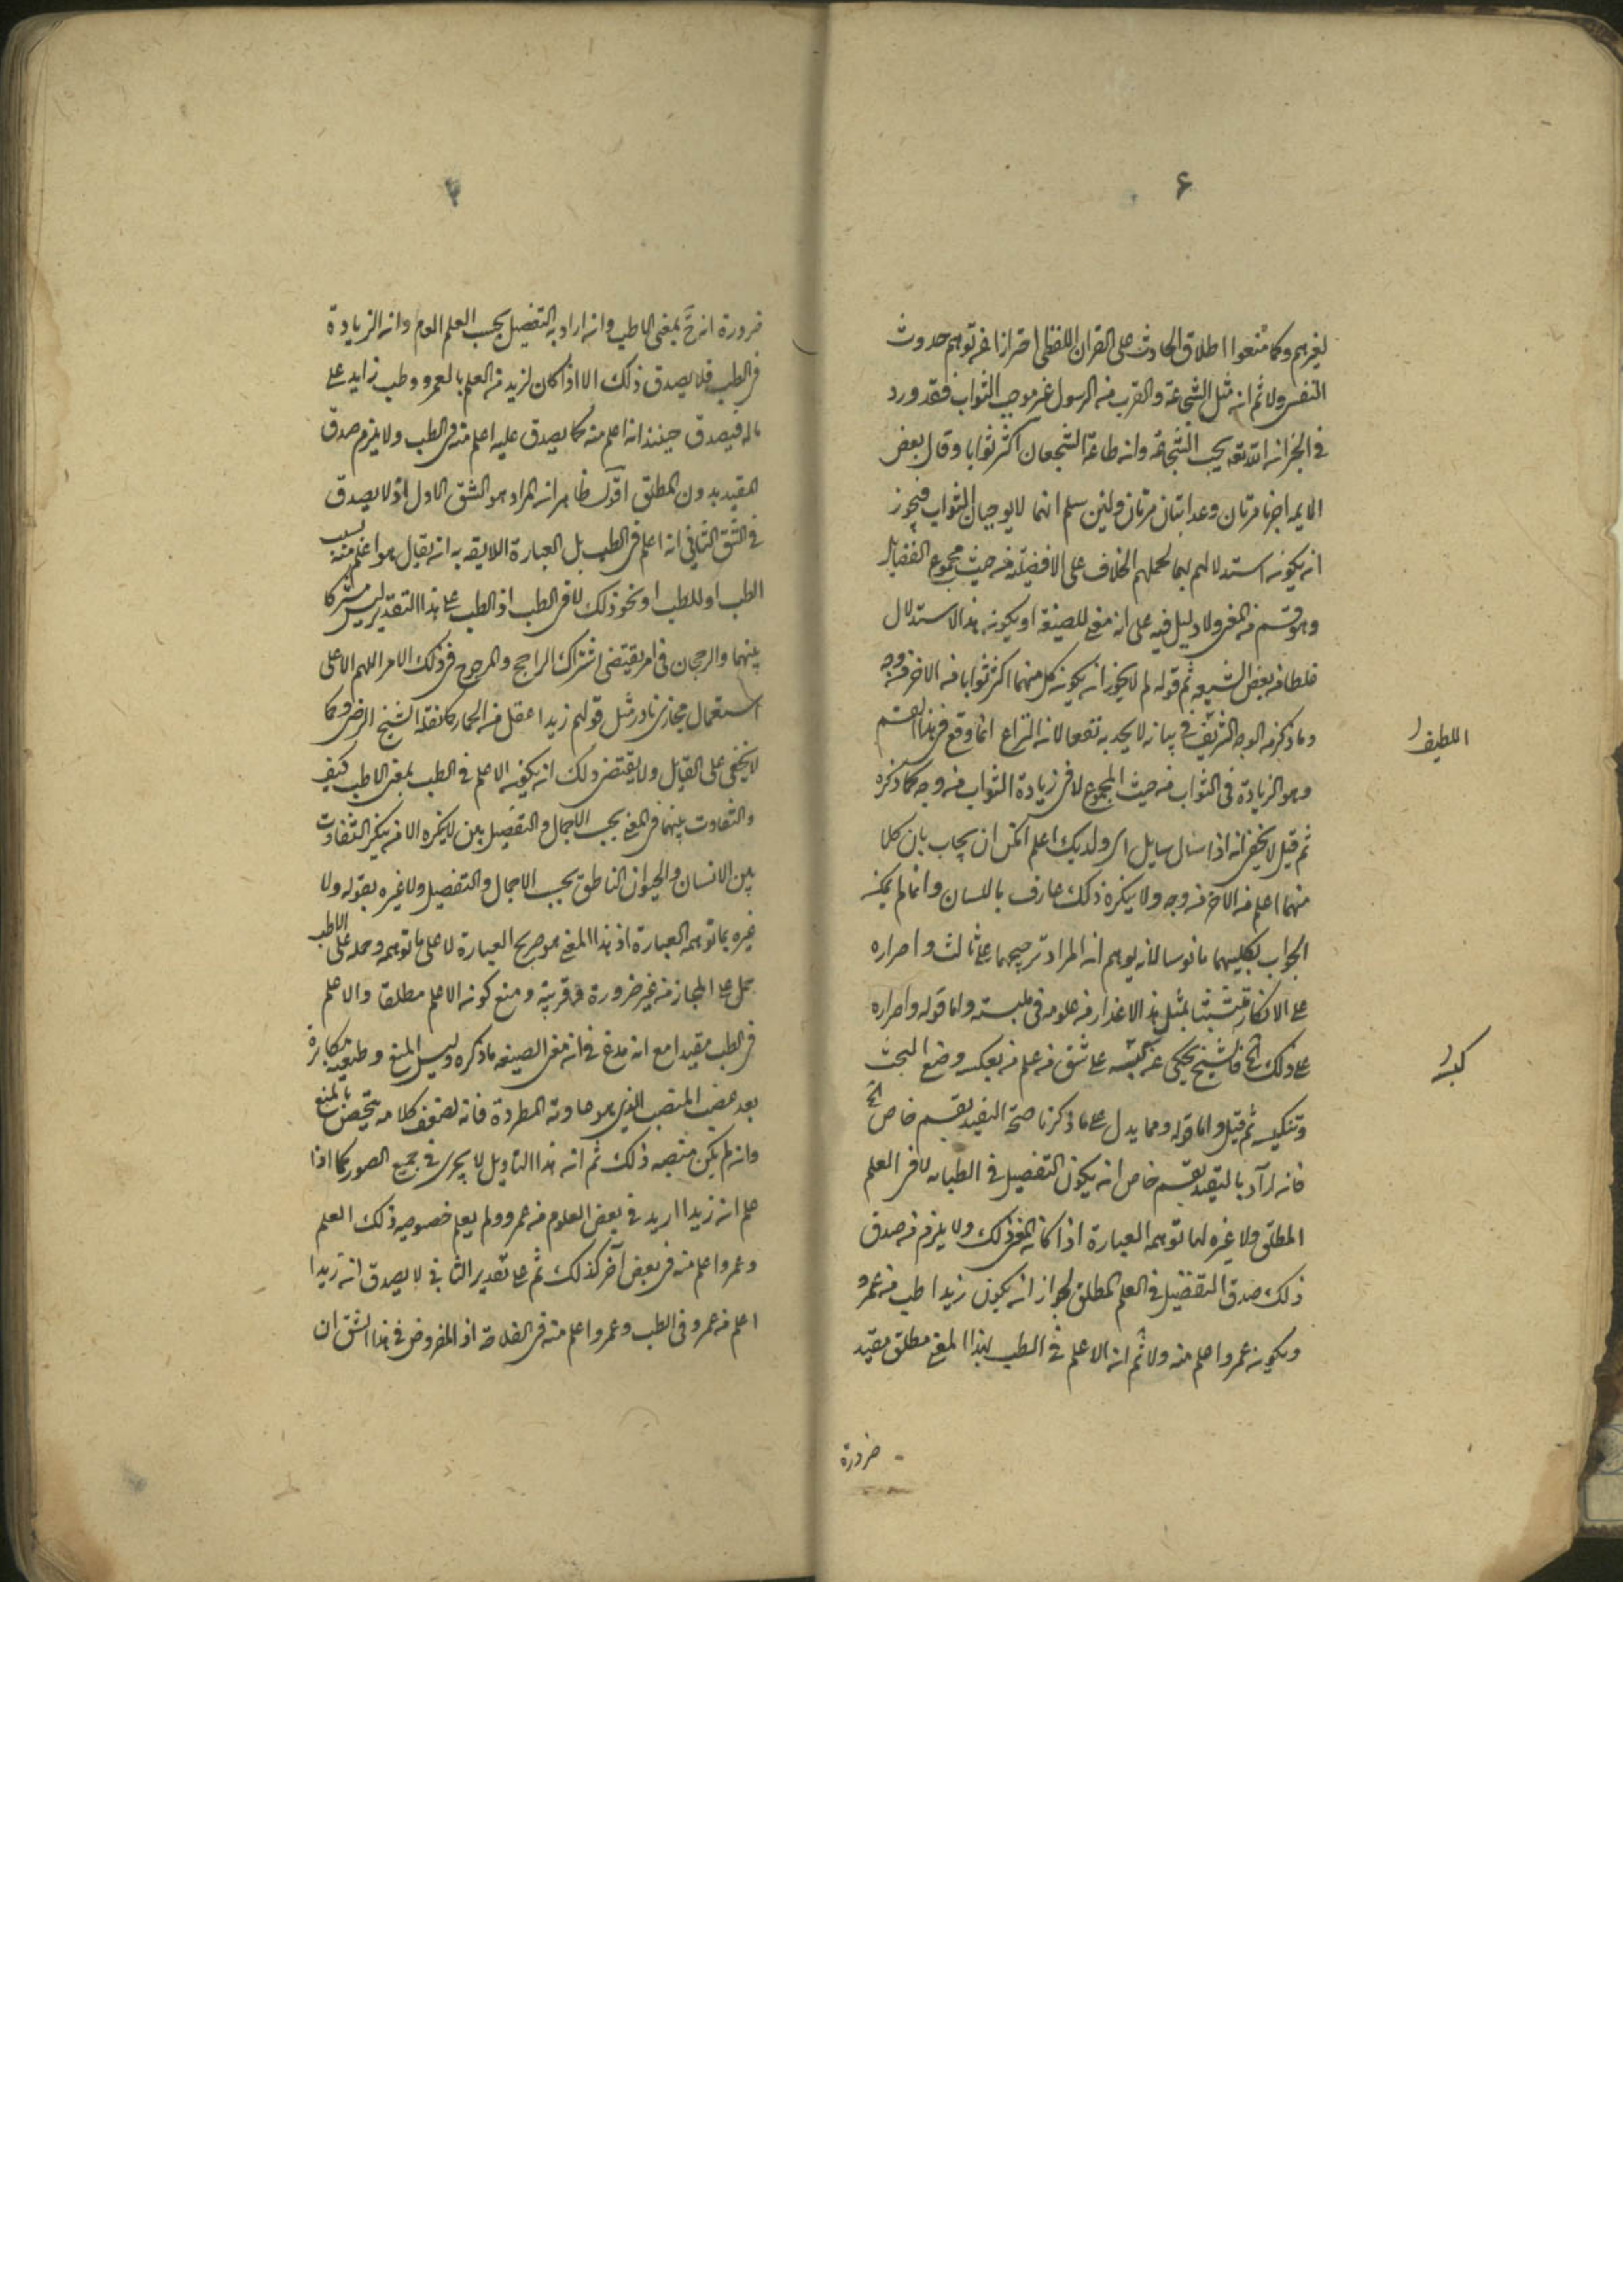 ۶
لغيرهم وكما منعوا اطلاق الحادث على القران اللفظى احترازا عن توهم حدوث
النفسى ولا ثم ان مثل الشجاعة والقرب من الرسول غير موجب الثواب فقد ورد
فى الخبر ان الله تعه يحب الشجاعة وان طاعة الشجعان اكثر ثوابا وقال بعض
الايمه اجرنا مرتان وعذابنان مرتان ولين سلم انهما لا يوجبان الثواب فيجوز
ان يكون استدلالهم بهما لحملهم الخلاف على الافضيلة من حيث مجموع الفضايل
وهو قسم من المعنى ولا دليل فيه على انه معنى للصيغة او يكون هذا الاستدلال
غلطا من بعض الشيعه ثم قوله لم لا يجوز ان يكون كل منهما اكثر ثوابا من الاخر من وجه
وما ذكر من الوجه الشريف فى بيانه لا يجد به نفعا لان النزاع انما وقع فى هذا القسم
اللطيف
وهو الزيادة فى الثواب من حيث المجموع لا فى زيادة الثواب من وجه كما ذكره
ثم قيل لا يخفى انه اذا سال سايل اى ولديك اعلم امكن ان يجاب بان كلا
منهما اعلم من الاخر من وجه ولا ينكره ذلك عارف باللسان وانما لم يكن
الجواب بكليهما مانوسا لانه يوهم ان المراد ترجيحهما على ثالث واصراره
على الانكار متشبثا بمثل هذا الاعذار من علومه فى ملبسته واما قوله واصراره
على ذلك الخ فالشيخ يحكى عن كيسه على شق من علم من يعكس وضع البحث
كيسه
وتنكيسه ثم قيل واما قوله ومما يدل على ما ذكرنا صحة التقييد بقسم خاص الخ
فانه اراد بالتقييد بقسم خاص ان يكون التفضيل فى الطبابه لا فى العلم
المطلق ولا غيره لما توهمه العبارة اذا كان المعنى ذلك ولا يلزم من صدق
ذلك صدق التفضيل فى العلم المطلق لجواز ان يكون زيد اطب من عمرو
ويكون عمرو اعلم منه ولا ثم ان الاعلم فى الطب بهذا المعنى مطلق مقيد
ضرورة
ضرورة انه ح بمعنى الاطب وان اراد به التفضيل بحسب العلم العام وان الزيادة
فى الطب فلا يصدق ذلك الا اذا كان لزيد من العلم بالعمرو وطب زايد على
ماله فيصدق حينئذ انه اعلم منه كما يصدق عليه اعلم منه فى الطب ولا يلزم صدق
المقيد بدون المطلق اقول ظاهر ان المراد هو الشق الاول اذ لا يصدق
فى الشق الثانى انه اعلم فى الطب بل العبارة اللايقه به ان يقال هو اعلم منه بسبب
الطب او للطب او نحو ذلك لا فى الطب اذ الطب على هذا التقدير ليس مشتركا
بينهما والرجحان فى امر يقتضى اشتراك الراجح والمرجوح فى ذلك الامر اللهم الا على
استعمال مجازى نادر مثل قولهم زيد اعقل من الحمار كما نقله الشيخ الرضى وكما
لا يخفى على القايل ولا يقتضى ذلك ان يكون الاعلم فى الطب بمعنى الاطب كيف
والتفاوت بينهما فى المعنى بحسب الاجمال والتفصيل بين لا ينكره الا من ينكر التفاوت
بين الانسان والحيوان الناطق بحسب الاجمال والتفصيل ولا غيره بقوله ولا
غيره بما توهمه العبارة اذ هذا المعنى هو صريح العبارة لا على ما توهمه وحمله على الاطب
حمل على المجاز من غير ضرورة وقرينة ومنع كون الاعلم مطلقا والاعلم
فى الطب مقيدا مع انه مدع فى ان معنى الصيغه ما ذكره وليس المنع وطيفته مكابرة
بعد غصب المنصب الذى هو عادته المطردة فانه لضعف كلامه يتحصن بالمنع
وان لم يكن منصبه ذلك ثم ان هذا التاويل لا يجرى فى جميع الصور كما اذا
علم ان زيدا ازيد فى بعض العلوم من عمرو ولم يعلم خصوصيه ذلك العلم
وعمروا اعلم منه فى بعض آخر كذلك ثم على تقدير الثانى لا يصدق ان زيدا
اعلم من عمرو فى الطب وعمروا اعلم منه فى الفلاحة اذ المفروض فى هذا الشق ان